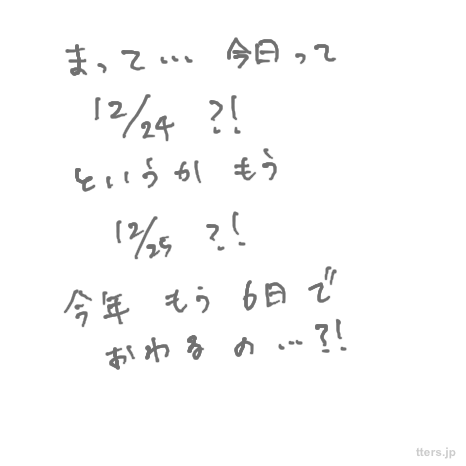 まって… 今日って
12/24 ?!
というか もう
12/25 ?!
今年 もう 6日で
おわるの …?!
tters.jp